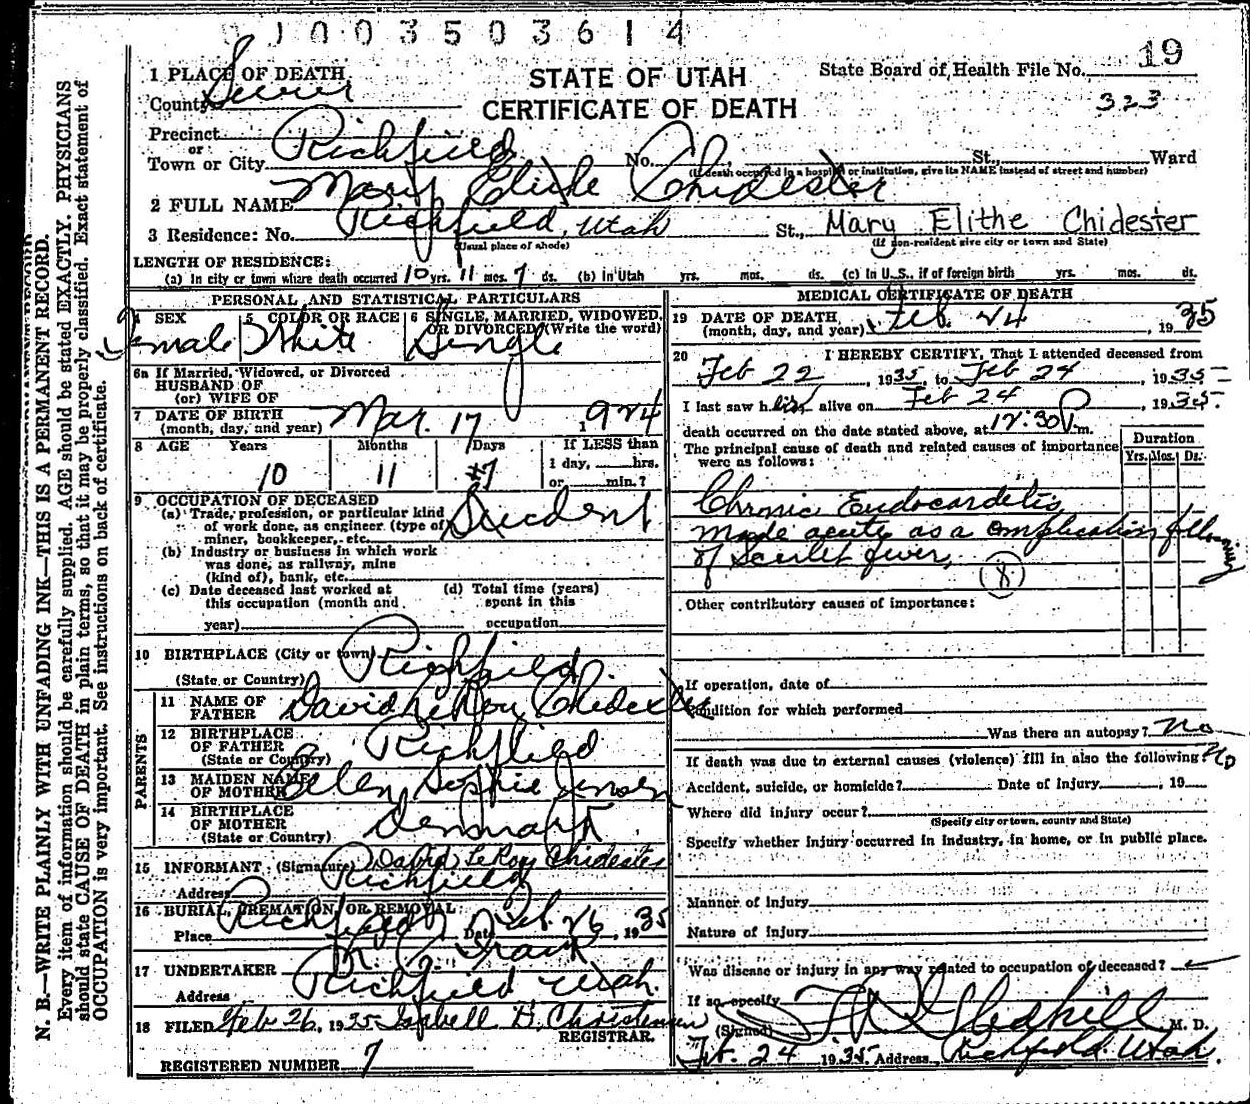 1003503614
19
1 PLACE OF DEATH
STATE OF UTAH
State Board of Health File No.
County Sevier
CERTIFICATE OF DEATH
323
Precinct
or
Town or City Richfield No. St., Ward
(If death occurred in a hospital or institution, give its NAME instead of street and number)
2 FULL NAME Mary Elithe Chidester
3 Residence: No. Richfield, Utah St., Mary Elithe Chidester
(Usual place of abode) (If non-resident give city or town and State)
LENGTH OF RESIDENCE:
(a) In city or town where death occurred 10 yrs. 11 mos. 7 ds. (b) In Utah yrs. mos. ds. (c) In U.S., if of foreign birth yrs. mos. ds.
PERSONAL AND STATISTICAL PARTICULARS
4 SEX 5 COLOR OR RACE 6 SINGLE, MARRIED, WIDOWED, OR DIVORCED (Write the word)
Female White Single
6a If Married, Widowed, or Divorced
HUSBAND OF
(or) WIFE OF
7 DATE OF BIRTH
(month, day, and year) Mar. 17 1924
8 AGE Years Months Days If LESS than
1 day, hrs.
or min.?
10 11 7
9 OCCUPATION OF DECEASED
(a) Trade, profession, or particular kind
of work done, as engineer, (type of
miner, bookkeeper, etc. Student
(b) Industry or business in which work
was done, as railway, mine
(kind of), bank, etc.
(c) Date deceased last worked at
this occupation (month and
year)
(d) Total time (years)
spent in this
occupation
10 BIRTHPLACE (City or town) Richfield
(State or Country)
PARENTS
11 NAME OF
FATHER David LeRoy Chidester
12 BIRTHPLACE
OF FATHER Richfield
(State or Country)
13 MAIDEN NAME
OF MOTHER Ellen Sophie Jensen
14 BIRTHPLACE
OF MOTHER Denmark
(State or Country)
15 INFORMANT (Signature) David LeRoy Chidester
Address Richfield
16 BURIAL, CREMATION, OR REMOVAL
Place Richfield Date Feb. 26, 1935
17 UNDERTAKER
Address Richfield Utah.
18 FILED Feb 26, 1935 Isabell B. Christensen
REGISTRAR.
REGISTERED NUMBER 7
MEDICAL CERTIFICATE OF DEATH
19 DATE OF DEATH
(month, day, and year) Feb. 24, 1935
20 I HEREBY CERTIFY, That I attended deceased from
Feb 22, 1935, to Feb 24, 1935
I last saw h alive on Feb 24, 1935.
death occurred on the date stated above, at 12:30 P.m.
The principal cause of death and related causes of importance
were as follows:
Duration
Yrs. Mos. Ds.
Chronic Endocardetis
made acute as a complication following
of Scarlet fever,
(8)
Other contributory causes of importance:
If operation, date of
Condition for which performed
Was there an autopsy? No
If death was due to external causes (violence) fill in also the following: No
Accident, suicide, or homicide? Date of injury , 19
Where did injury occur?
(Specify city or town, county and State)
Specify whether injury occurred in industry, in home, or in public place.
Manner of Injury
Nature of Injury
Was disease or injury in any way related to occupation of deceased?
If so, specify
(Signed) Gledhill M. D.
Feb. 24 1935 Address Richfield. Utah.
N. B.—WRITE PLAINLY WITH UNFADING INK—THIS IS A PERMANENT RECORD.
Every item of information should be carefully supplied. AGE should be stated EXACTLY. PHYSICIANS
should state CAUSE OF DEATH in plain terms, so that it may be properly classified. Exact statement of
OCCUPATION is very important. See instructions on back of certificate.